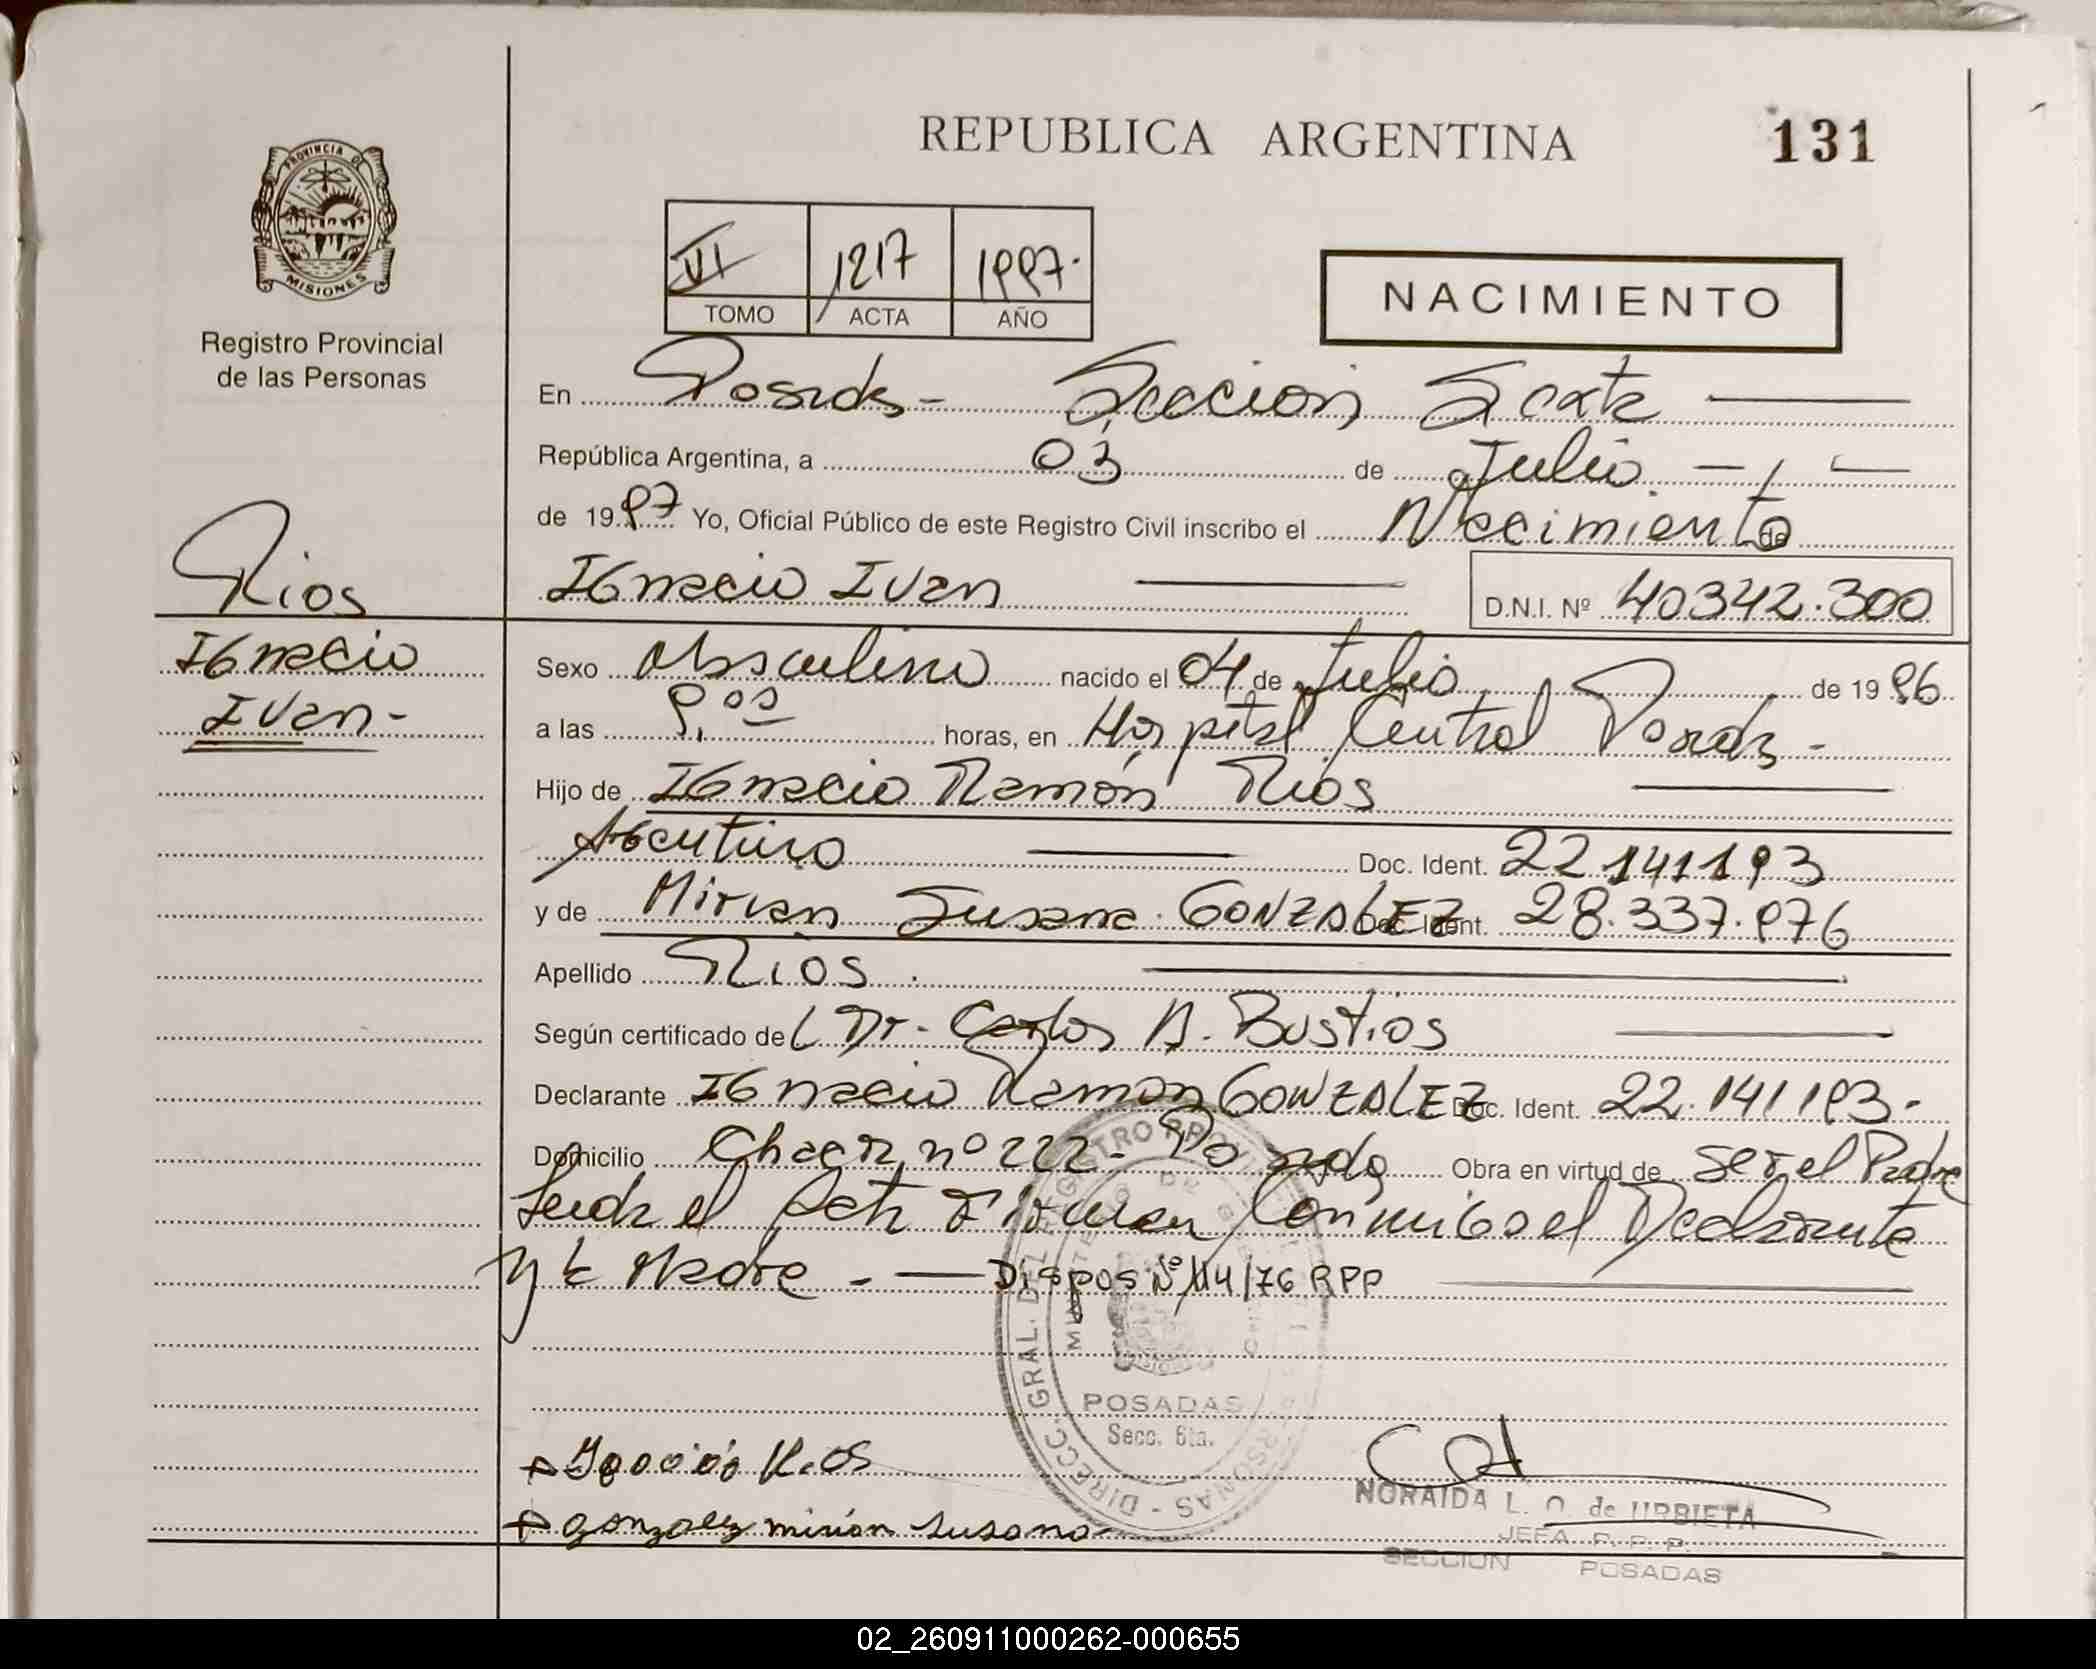 REPUBLICA ARGENTINA
131
PROVINCIA DE
MISIONES
Registro Provincial
de las Personas
VI 1217 1997.
TOMO ACTA AÑO
NACIMIENTO
En Posadas - Sección Sexta
República Argentina, a 03 de Julio.
de 1997 Yo, Oficial Público de este Registro Civil inscribo el Nacimiento de
Rios
Ignacio Ivan
D.N.I. Nº 40342.300
Ignacio
Ivan-
Sexo Masculino nacido el 04 de Julio de 1996
a las 9,00 horas, en Hospital Central Posadas -
Hijo de Ignacio Ramón Rios
Argentino Doc. Ident. 22 141 193
y de Mirian Susana GONZALEZ Doc. Ident. 28.337.976
Apellido Rios.
Según certificado de Dr. Carlos A. Bustios
Declarante Ignacio Ramon GONZALEZ Doc. Ident. 22.141 193-
Domicilio Chacra nº 222 - Posadas Obra en virtud de ser el Padre
Leida el Acta Firman Conmigo el Declarante
y la Madre - Dispos Nº 114/76 RPP
POSADAS
Secc. 6ta.
Rios
gonzalez mirian susana
NORAIDA L. O. de URBIETA
JEFA R. P. P.
SECCION POSADAS
02_260911000262-000655